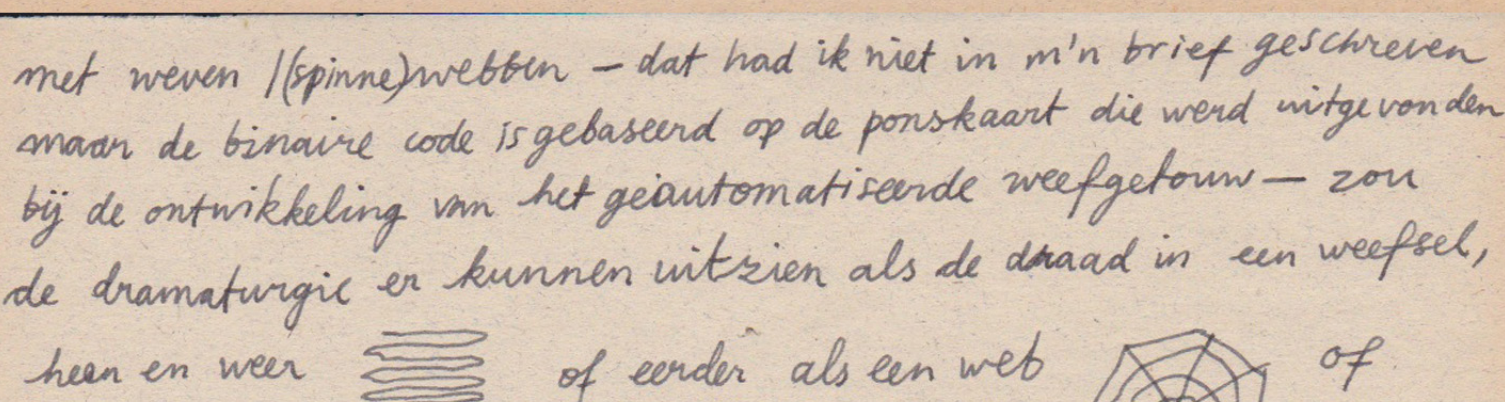 met weven /(spinne)webben – dat had ik niet in m'n brief geschreven
maar de binaire code is gebaseerd op de ponskaart die werd uitgevonden
bij de ontwikkeling van het geautomatiseerde weefgetouw – zou
de dramaturgie er kunnen uitzien als de draad in een weefsel,
heen en weer of eerder als een web of